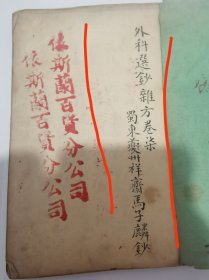 外科選鈔雜方卷柒
蜀東夔州祥齋馬子麟鈔
依斯蘭百貨分公司
依斯蘭百貨分公司